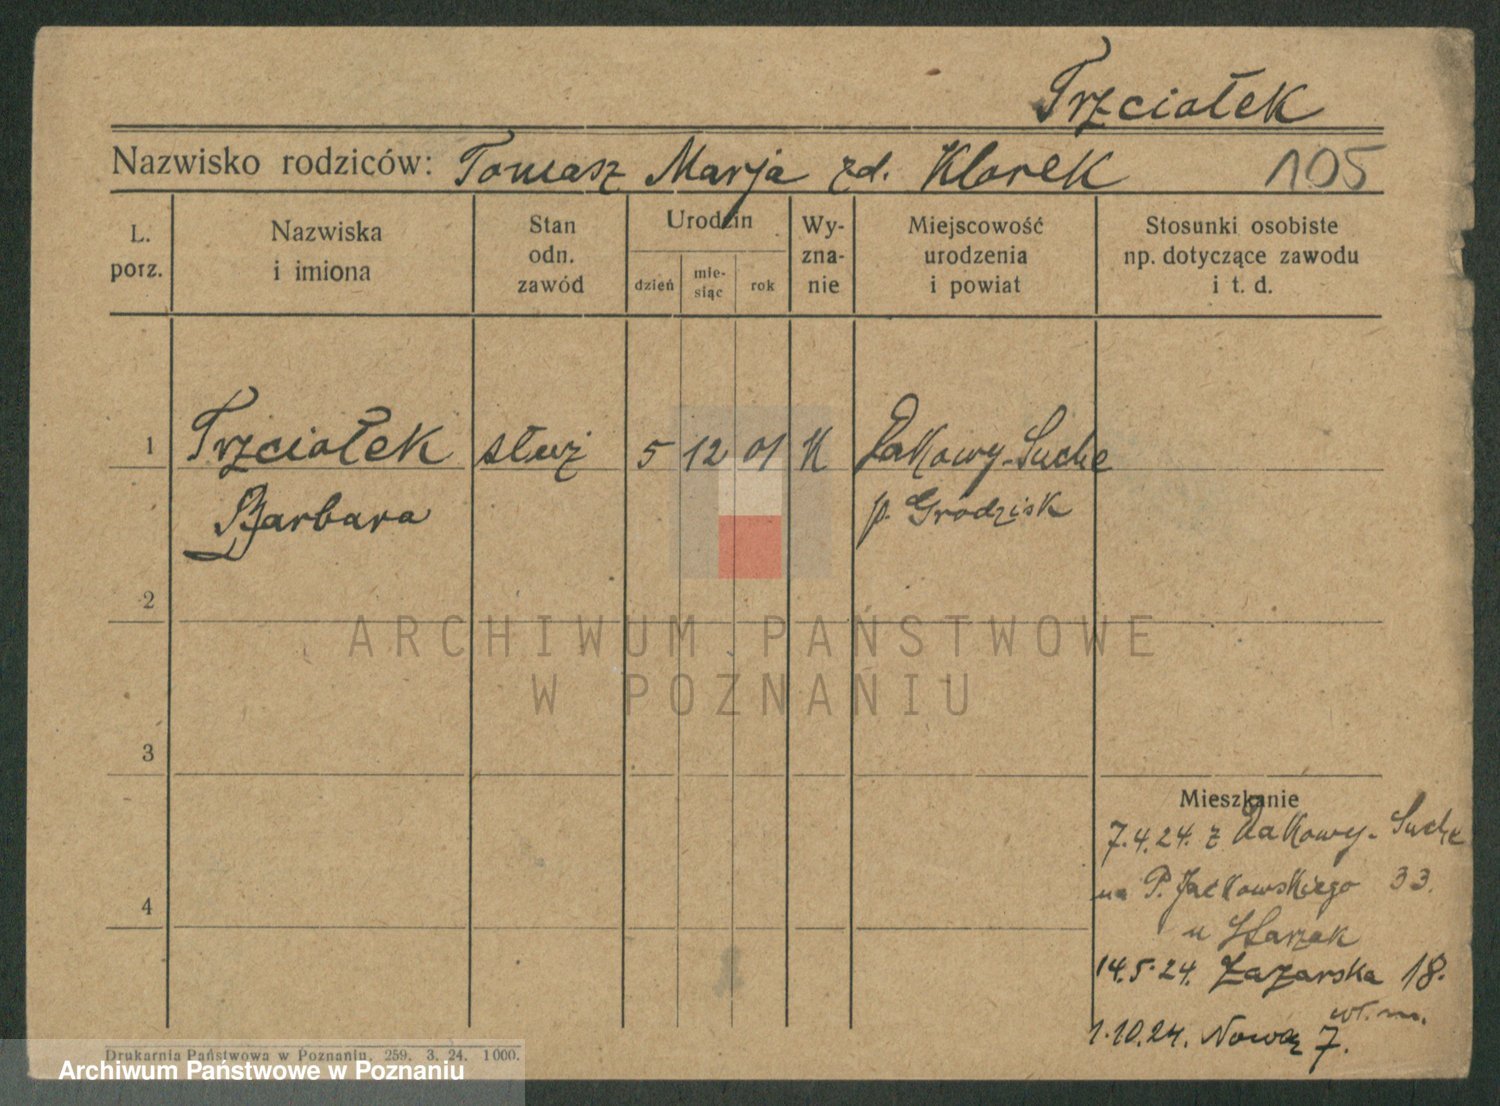 Trzciałek
Nazwisko rodziców: Tomasz Marja zd. Klorek 105
L. porz.
Nazwiska i imiona
Stan odn. zawód
Urodzin
dzień
mie-siąc
rok
Wy-zna-nie
Miejscowość urodzenia i powiat
Stosunki osobiste np. dotyczące zawodu i t. d.
1 Trzciałek służ 5 12 01 K Ptakowy-Suche
Barbara p. Grodzisk
2
ARCHIWUM PAŃSTWOWE
W POZNANIU
3
Mieszkanie
7.4.24. z Suche
na P. Jackowskiego 33.
4
u
14.5.24. Łazarska 18.
wł. m.
1.10.24. Nową 7.
Drukarnia Państwowa w Poznaniu, 259. 3. 24. 1000.
Archiwum Państwowe w Poznaniu